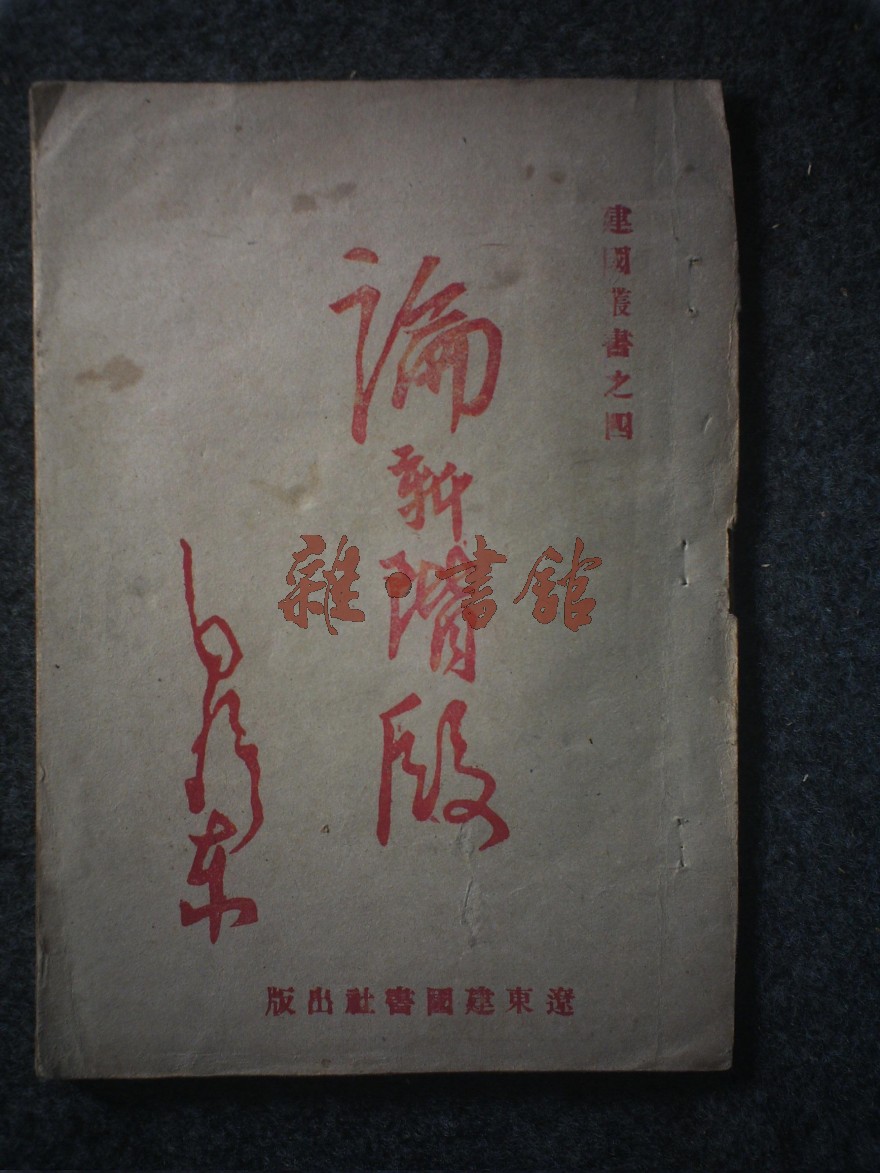 建國叢書之四
論新階段
毛澤東
遼東建國書社出版
雜·書館